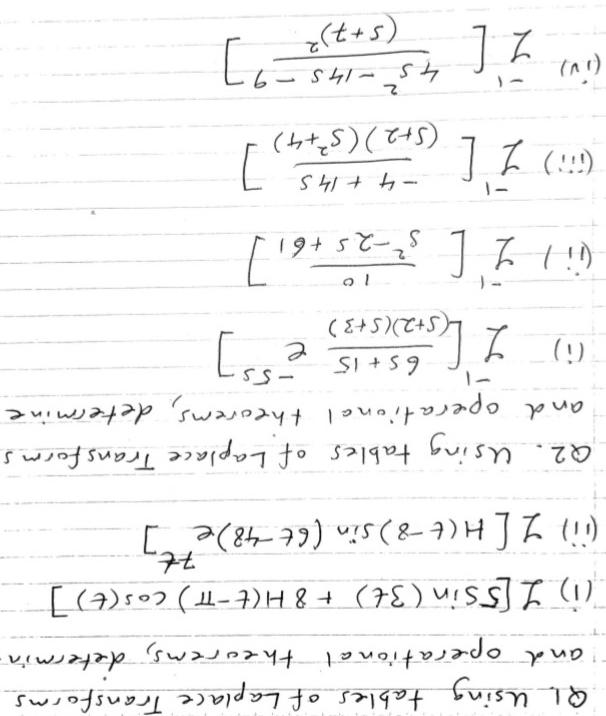 Q1. Using tables of Laplace Transforms
and operational theorems, determin
(i) ℒ[5 Sin(3t) + 8H(t-π) cos(t)]
(ii) ℒ[H(t-8) sin(6t-48) e^{7t}]
Q2. Using tables of Laplace Transforms
and operational theorems, determine
(i) ℒ^{-1}[(6s+15)/((s+2)(s+3)) e^{-5s}]
(ii) ℒ^{-1}[10/(s^2-2s+61)]
(iii) ℒ^{-1}[(-4+14s)/((s+2)(s^2+4))]
(iv) ℒ^{-1}[(4s^2-14s-9)/(s+7)^2]